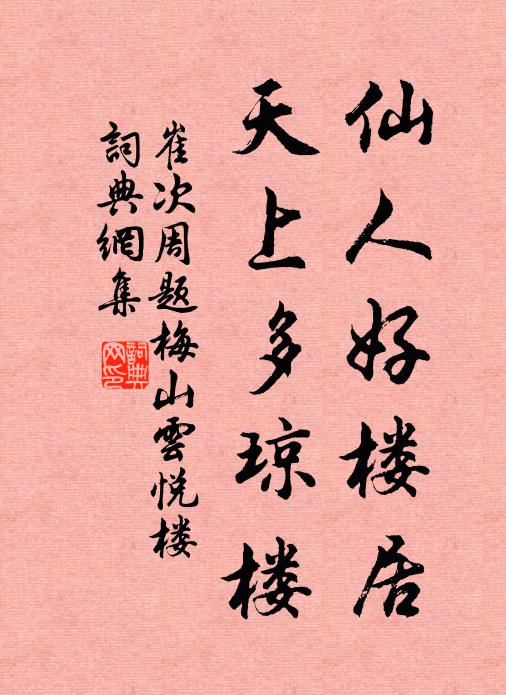 仙人好楼居
天上多琼楼
崔次周题梅山雲悦楼
詞典網集
詞典网印